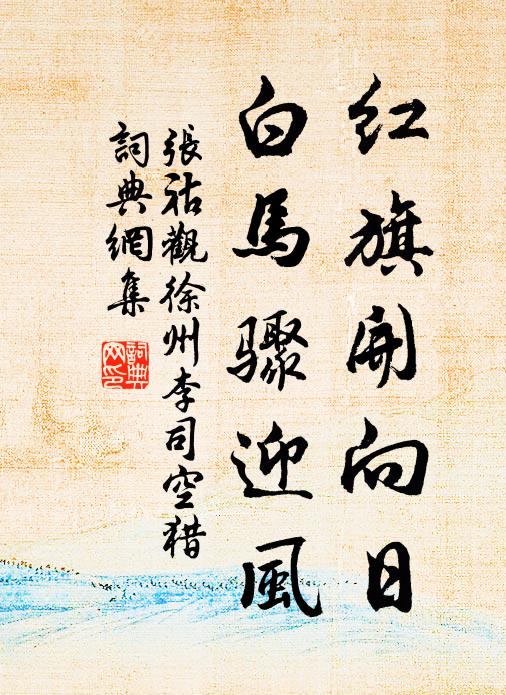 红旗開向日
白馬驟迎風
張祜觀徐州李司空猎
詞典網集
詞典网印